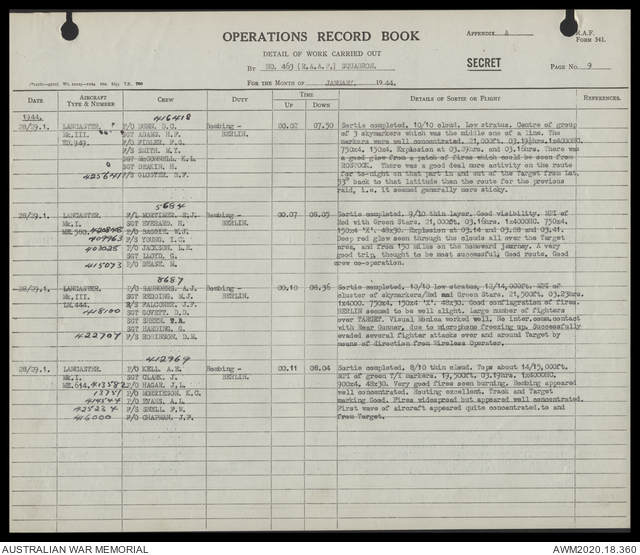 OPERATIONS RECORD BOOK
APPENDIX A
R.A.F.
FORM 541.
DETAIL OF WORK CARRIED OUT
By NO. 463 (R.A.A.F.) SQUADRON.
SECRET
PAGE NO. 9
FOR THE MONTH OF JANUARY, 1944.
DATE
AIRCRAFT TYPE & NUMBER
CREW
DUTY
TIME
UP
DOWN
DETAILS OF SORTIE OR FLIGHT
REFERENCES.
1944.
416418
28/29.1. LANCASTER. P/O DUNN, D.C. Bombing - 00.02 07.50 Sortie completed. 10/10 cloud. Low stratus. Centre of group
Mk.III. SGT ADAMS, H.F. BERLIN. of 3 skymarkers which was the middle one of a line. The
ED.949. F/O FIDLER, F.G. markers were well concentrated. 21,000ft. 03.19½hrs. 1x4000HC.
F/S SMITH, M.Y. 750x4. 150x4. Explosion at 03.29hrs. and 03.16hrs. There was
SGT McCONNELL, K.L. a good glow from a patch of fires which could be seen from
SGT DEAKIN, H. ROSTOCK. There was a good deal more activity on the route
425641 F/S GLOSTER, B.F. for to-night on that part in and out of the Target from Lat.
53° back to that latitude than the route for the previous
raid, i.e. it seemed generally more sticky.
5684
28/29.1. LANCASTER. F/L MORTIMER, R.J. Bombing - 00.07 08.05 Sortie completed. 9/10 thin layer. Good visibility. MPI of
Mk.I. SGT EVERARD, H. BERLIN. Red with Green Stars. 21,000ft, 03.16hrs. 1x4000HC. 750x4.
ME.580. 420848 F/O BAGGIE, W.J. 150x4 'X'. 48x30. Explosion at 03.14 and 03.28 and 03.41.
409963 F/S YOUNG, I.C. Deep red glow seen through the clouds all over the Target
403025 F/O JACKSON, L.E. area, and from 150 miles on the homeward journey. A very
SGT LLOYD, G. good trip, thought to be most successful, Good route, Good
415073 F/O O'LEARY, M. crew co-operation.
8687
28/29.1. LANCASTER. F/O SAUNDERS, A.J. Bombing - 00.10 08.36 Sortie completed. 10/10 low stratus, 12/14,000ft. MPI of
Mk.III. SGT REDDING, R.J. BERLIN. cluster of skymarkers/Red and Green Stars. 21,500ft. 03.23hrs.
LM.444. F/S FALCONER, J.F. 1x4000. 750x4. 150x4 'X'. 48x30. Good conflagration of fires.
418100 SGT GOVETT, D.D. BERLIN seemed to be well alight. Large number of fighters
SGT SHEEN, T.A. over TARGET. Visual Monica worked well. No inter.comm.contact
SGT HARDING, G. with Rear Gunner, due to microphone freezing up. Successfully
422707 F/S ROBINSON, D.M. evaded several fighter attacks over and around Target by
means of direction from Wireless Operator.
412969
28/29.1. LANCASTER. F/O KELL, A.E. Bombing - 00.11 08.04 Sortie completed. 8/10 thin cloud. Tops about 14/15,000ft.
Mk.I. SGT CLARK, J. BERLIN. MPI of green T/I markers. 19,500ft. 03.19hrs. 1x4000HC.
ME.614. 413582 F/O HAGAR, J.L. 900x4. 48x30. Very good fires seen burning. Bombing appeared
13751 F/O MORRIESON, K.C. well concentrated. Routing excellent. Track and Target
414544 F/O EVANS, A.L. marking Good. Fires widespread but appeared well concentrated.
425234 F/S SNELL, F.W. First wave of aircraft appeared quite concentrated.to and
416000 F/O CHAPMAN, J.F. from Target.
AUSTRALIAN WAR MEMORIAL
AWM2020.18.360